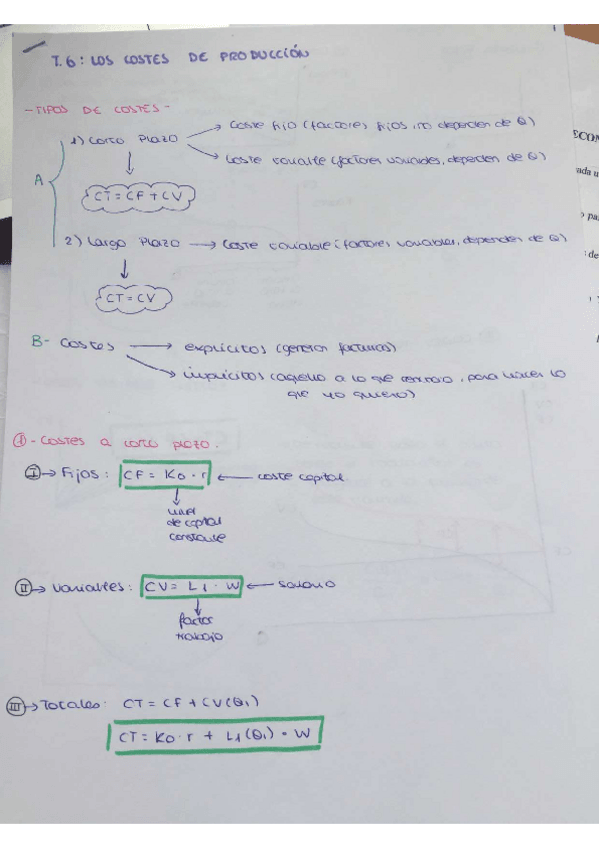 T.6: LOS COSTES DE PRODUCCIÓN
-TIPOS DE COSTES-
A
1) Corto Plazo
Coste fijo (factores fijos, no dependen de Q)
Coste variable (factores variables, dependen de Q)
CT = CF + CV
2) Largo Plazo → Coste variable (factores variables, dependen de Q)
CT = CV
B- Costes
explícitos (generan facturas)
implícitos (aquello a lo que renuncio, para hacer lo
que yo quiero)
① - Costes a corto plazo.
Ⓘ → Fijos: CF = K0 · r ← coste capital
de capital
constante
Ⓘ Ⓘ → Variables: CV = L1 · W ← salario
factor
trabajo
III → Totales: CT = CF + CV(Q1)
CT = K0 · r + L1(Q1) · W
ECON
ada u
pa
de